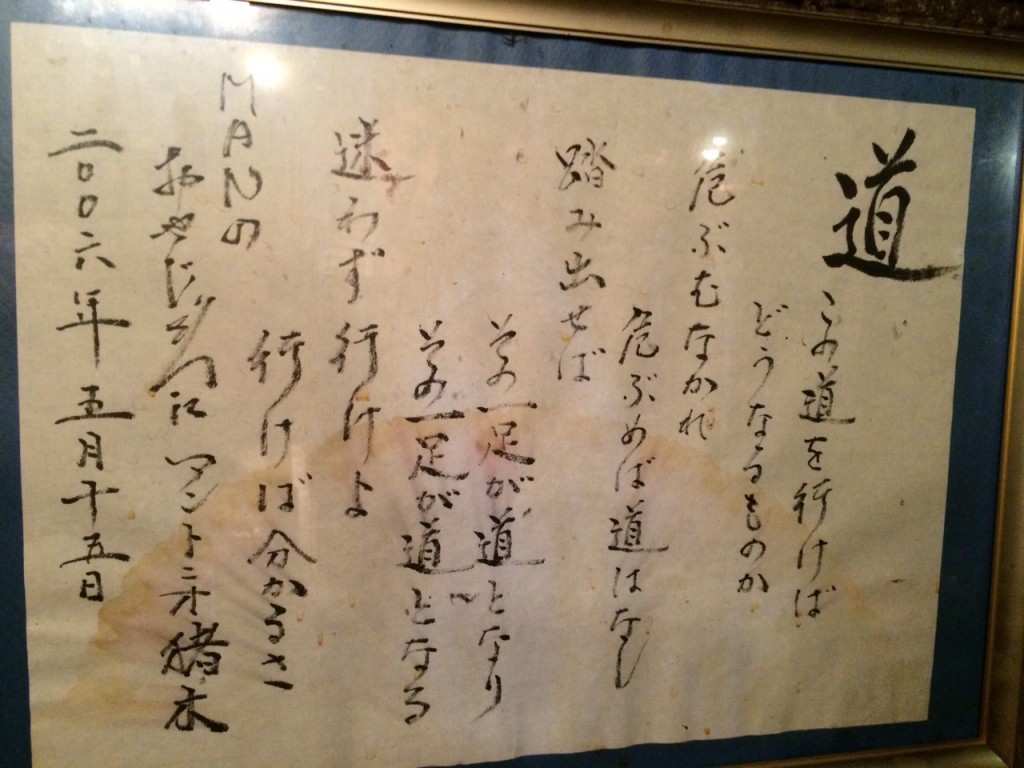 道
この道を行けば
どうなるものか
危ぶむなかれ
危ぶめば道はなし
踏み出せば
その一足が道となり
その一足が道となる
迷わず行けよ
行けば分かるさ
MANの
おやじ
江 アントニオ猪木
二〇〇六年五月十五日